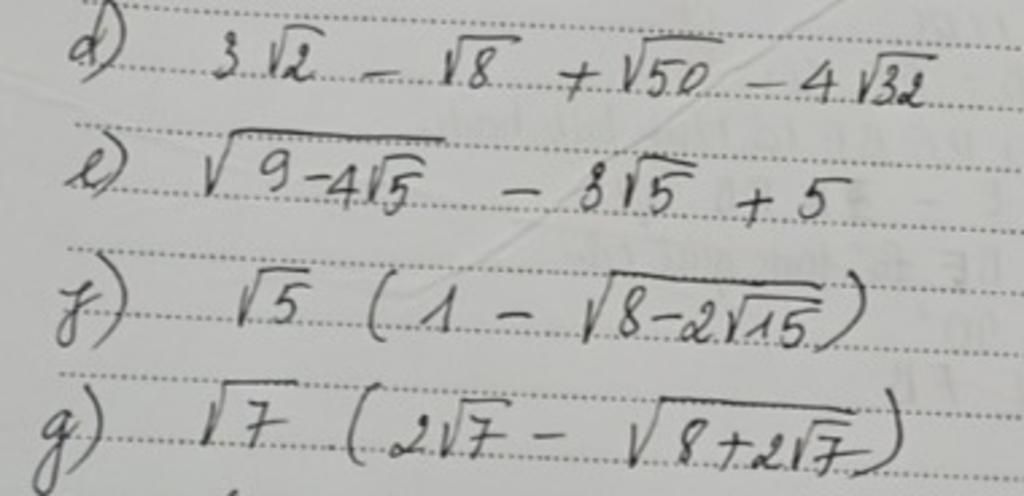 d) 3√2 − √8 + √50 − 4√32
e) √(9−4√5) − 3√5 + 5
f) √5 (1 − √(8−2√15))
g) √7 (2√7 − √(8+2√7))